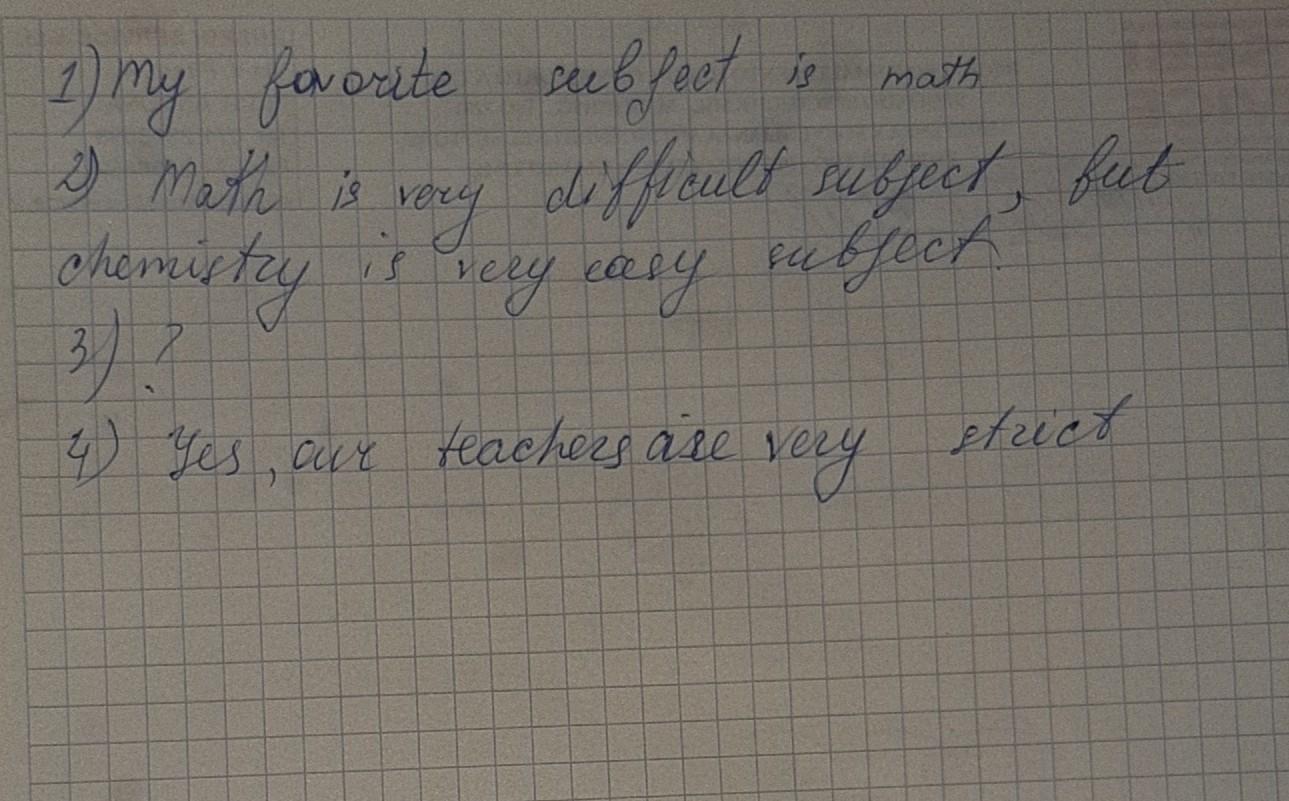 1) My favorite subject is math
2) Math is very difficult subject, but
chemistry is very easy subject.
3) ?
4) Yes, our teachers are very strict